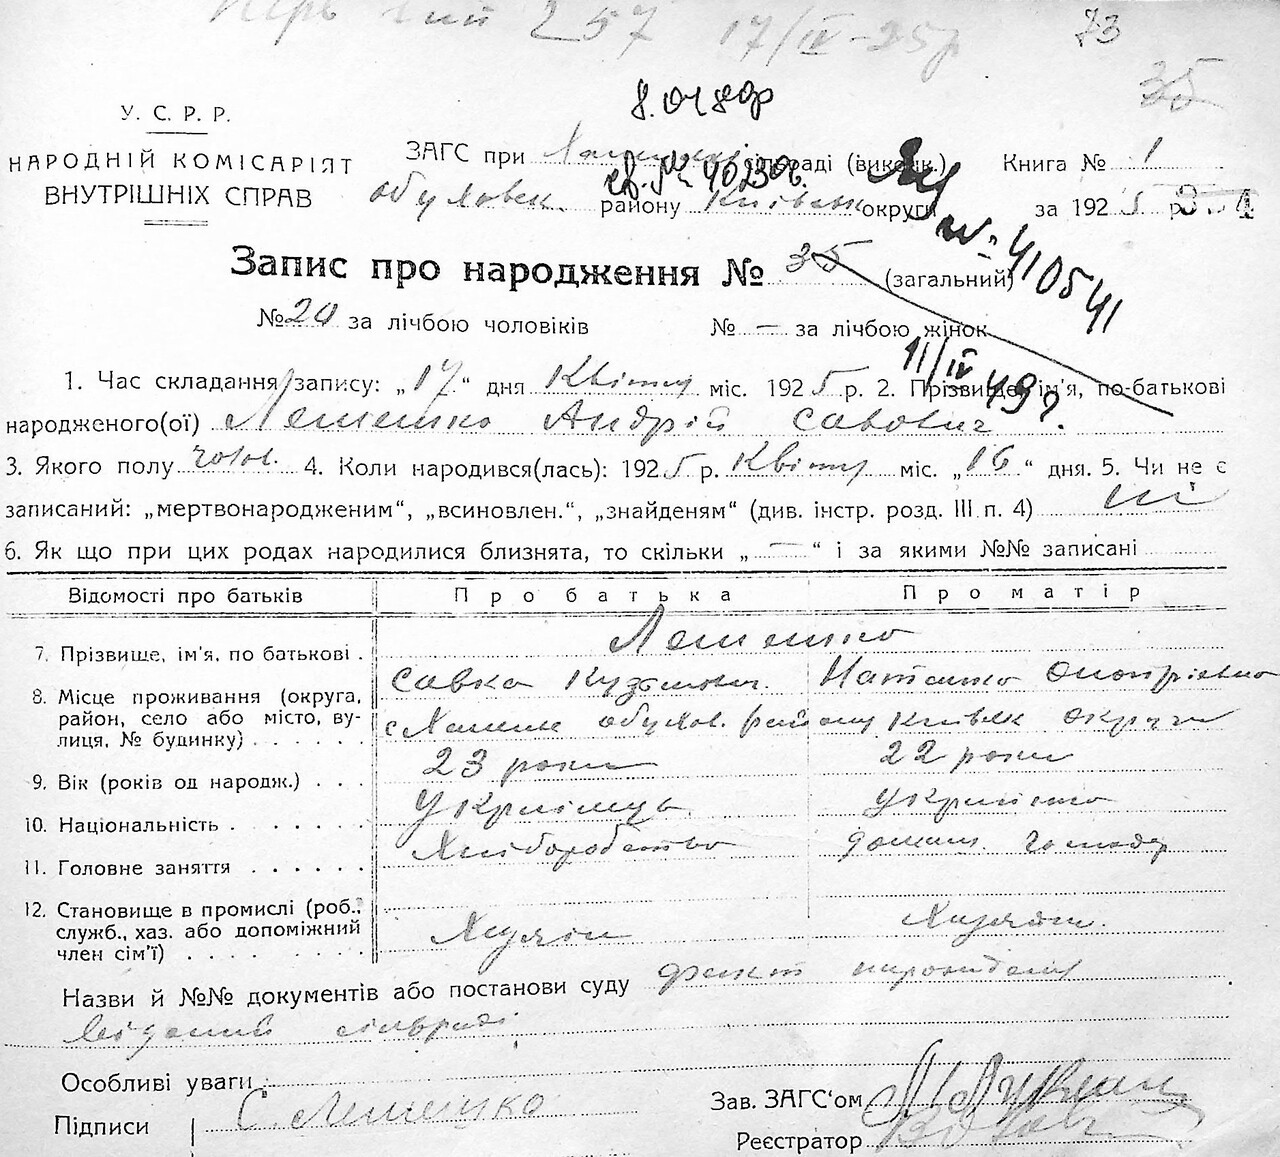 257 17/IV-25р
73
35
8.04.80р
У. С. Р. Р.
НАРОДНІЙ КОМІСАРІЯТ
ВНУТРІШНІХ СПРАВ
ЗАГС при сільраді (виконк.) Книга № 1
обуховськ. району Київськ округи за 1925 р.
334
№ 410541
Запис про народження № 35 (загальний)
№ 20 за лічбою чоловіків № — за лічбою жінок
11/IV 49р.
1. Час складання запису: „17“ дня Квітня міс. 1925 р. 2. Прізвище, ім'я, по-батькові
народженого(ої) Лешенко Андрій Савович
3. Якого полу чолов. 4. Коли народився(лась): 1925 р. Квітня міс. „16“ дня. 5. Чи не є
записаний: „мертвонародженим“, „всиновлен.“, „знайденям“ (див. інстр. розд. III п. 4) ні
6. Як що при цих родах народилися близнята, то скільки „—“ і за якими №№ записані
Відомості про батьків Про батька Про матір
7. Прізвище, ім'я, по батькові . Лешенко
Савка Кузьмович Наталка Онопріевна
8. Місце проживання (округа,
район, село або місто, ву-
лиця, № будинку) . . . . . . с обухов. району Київськ округи
9. Вік (років од народж.) . . . 23 роки 22 роки
10. Національність . . . . . . . Українець Українка
11. Головне заняття . . . . . . Хліборобство домаш. господ
12. Становище в промислі (роб.,
служб., хаз. або допоміжний
член сім'ї) . . . . . . . . . Хазяїн Хазяйка.
Назви й №№ документів або постанови суду факт народження
відомий сільраді
Особливі уваги
Підписи С. Лешенко
Зав. ЗАГС'ом
Реєстратор